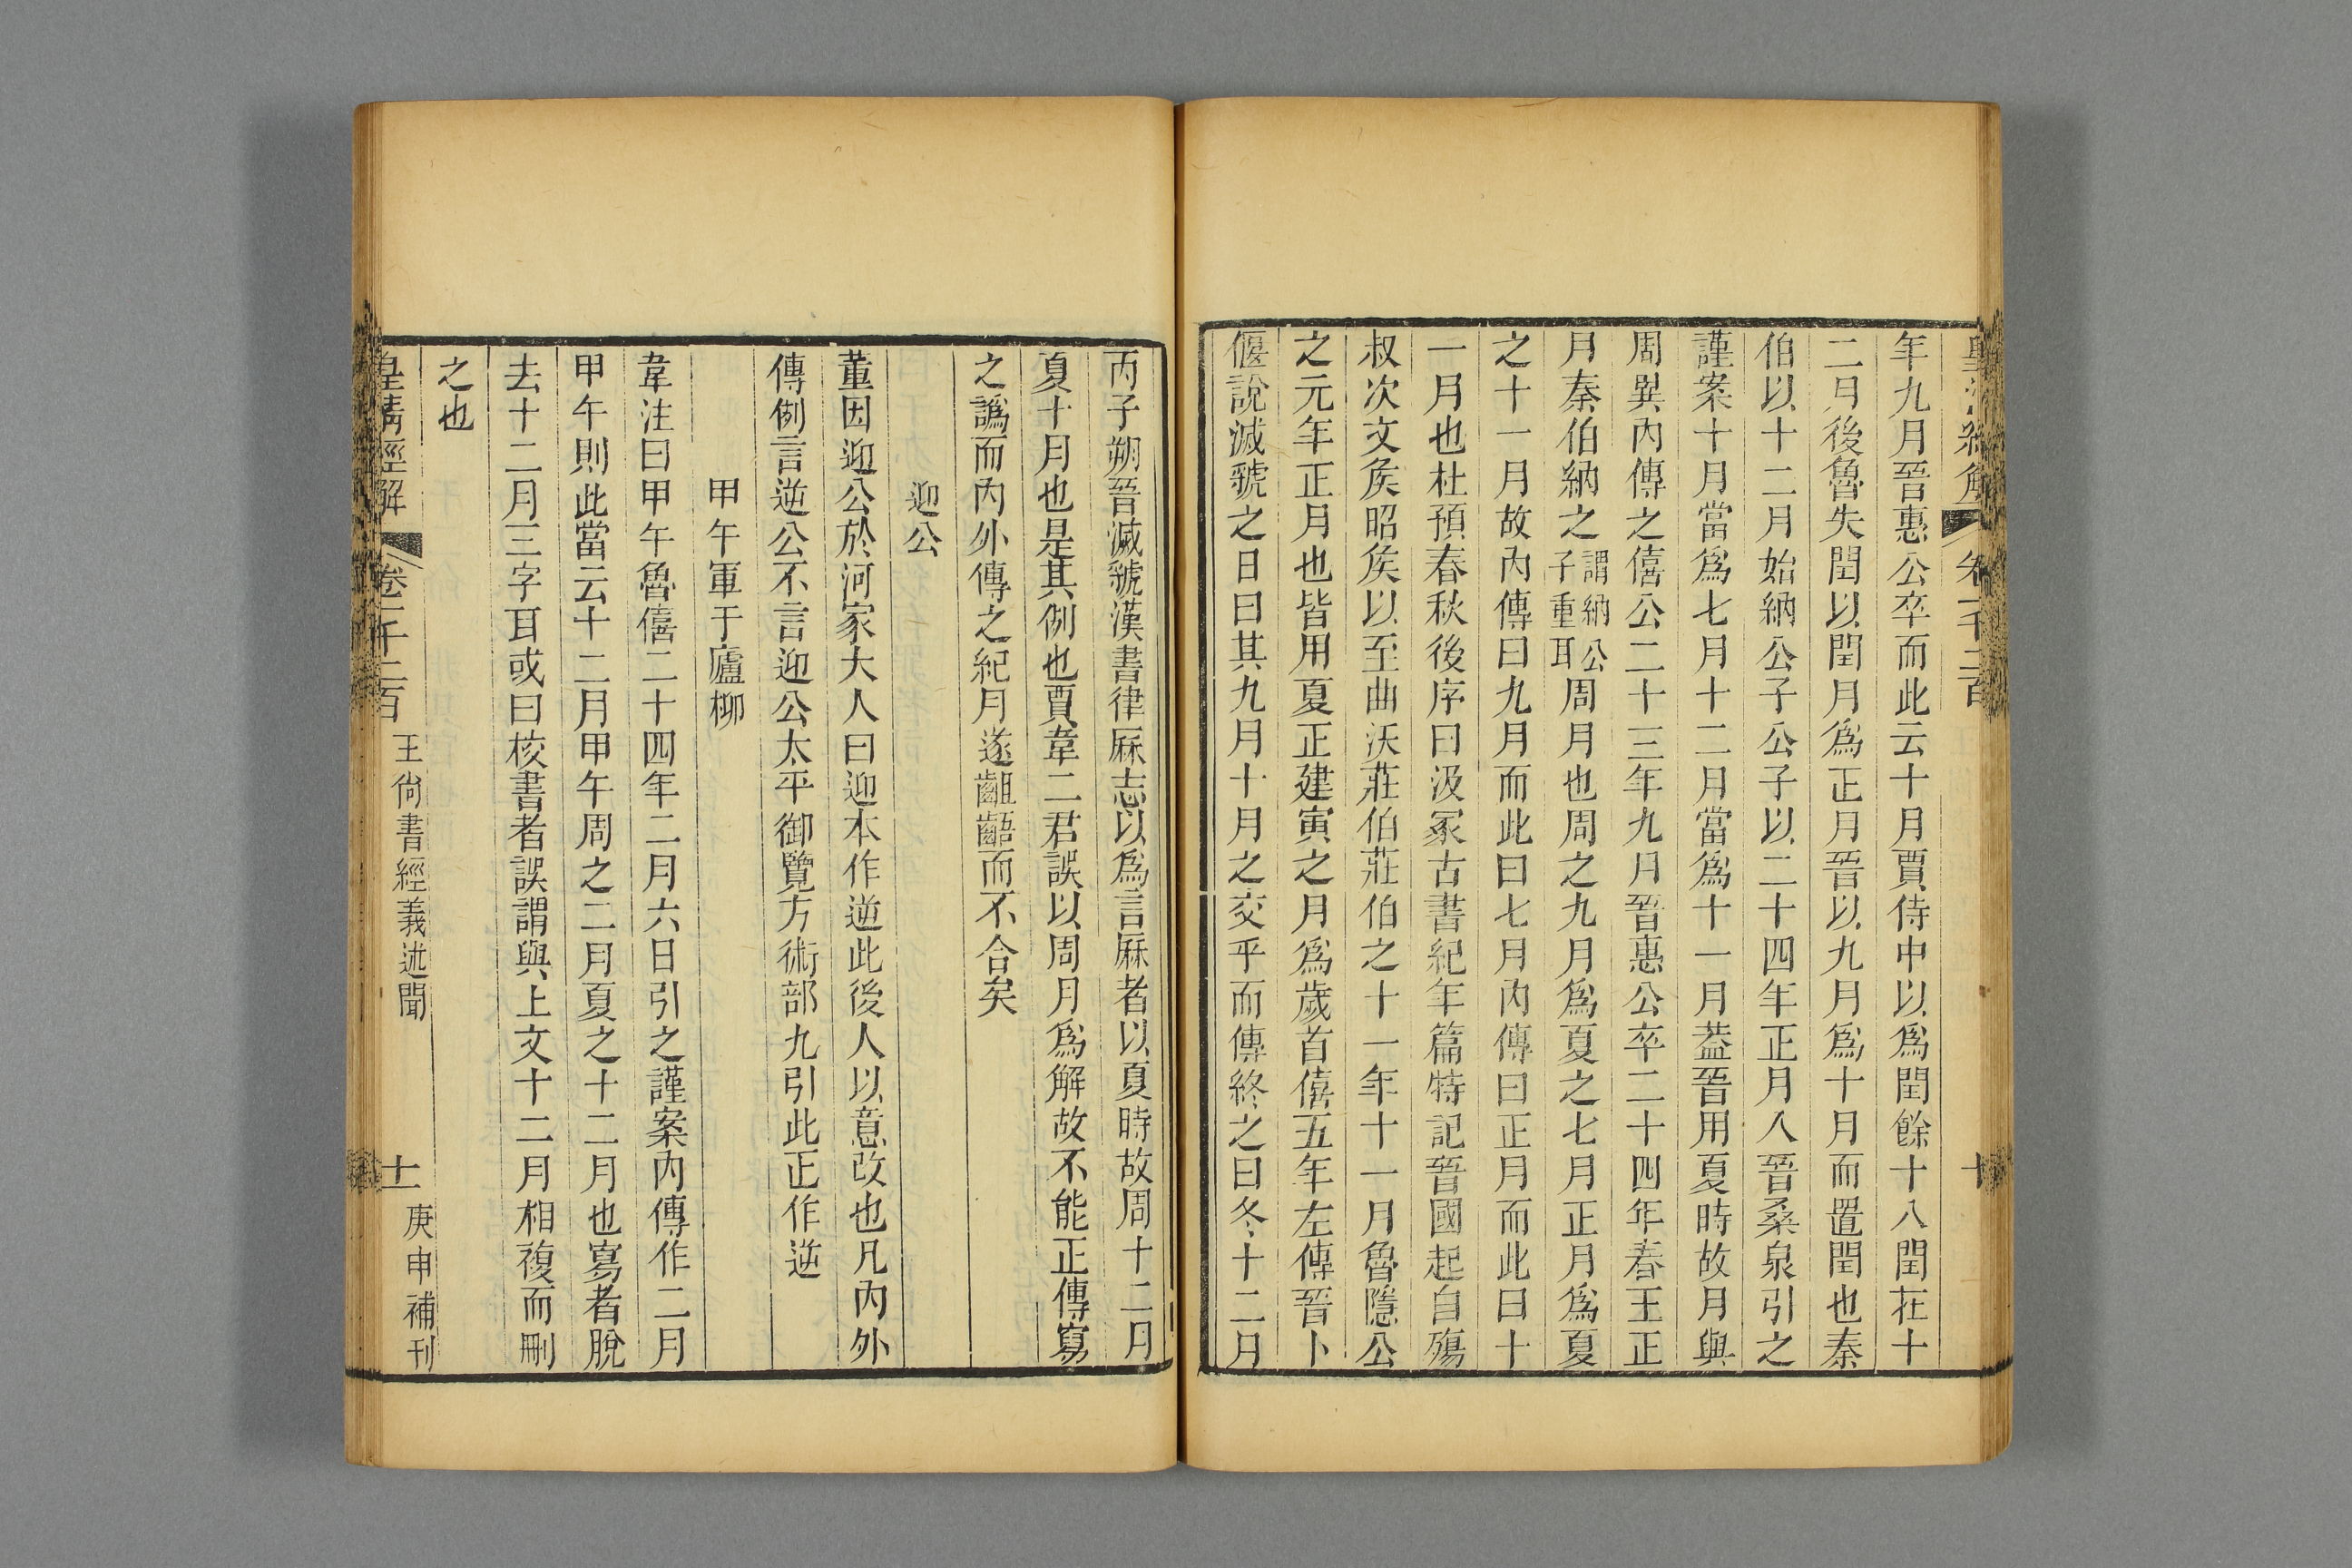 皇清經解 卷一千二百 十
年九月晉惠公卒而此云十月賈侍中以爲閏餘十八閏在十
二月後魯失閏以閏月爲正月晉以九月爲十月而置閏也秦
伯以十二月始納公子公子以二十四年正月入晉桑泉引之
謹案十月當爲七月十二月當爲十一月葢晉用夏時故月與
周異內傳之僖公二十三年九月晉惠公卒二十四年春王正
月秦伯納之謂納公子重耳周月也周之九月爲夏之七月正月爲夏
之十一月故內傳曰九月而此曰七月內傳曰正月而此曰十
一月也杜預春秋後序曰汲冢古書紀年篇特記晉國起自殤
叔次文矦昭矦以至曲沃莊伯莊伯之十一年十一月魯隱公
之元年正月也皆用夏正建寅之月爲歲首僖五年左傳晉卜
偃說滅虢之日曰其九月十月之交乎而傳終之曰冬十二月
丙子朔晉滅虢漢書律厤志以爲言厤者以夏時故周十二月
夏十月也是其例也賈韋二君誤以周月爲解故不能正傳寫
之譌而內外傳之紀月遂齟齬而不合矣
迎公
董因迎公於河家大人曰迎本作逆此後人以意改也凡內外
傳例言逆公不言迎公太平御覽方術部九引此正作逆
甲午軍于廬柳
韋注曰甲午魯僖二十四年二月六日引之謹案內傳作二月
甲午則此當云十二月甲午周之二月夏之十二月也寫者脫
去十二月三字耳或曰校書者誤謂與上文十二月相複而刪
之也
皇清經解 卷一千二百 王尙書經義述聞 十一 庚申補刊